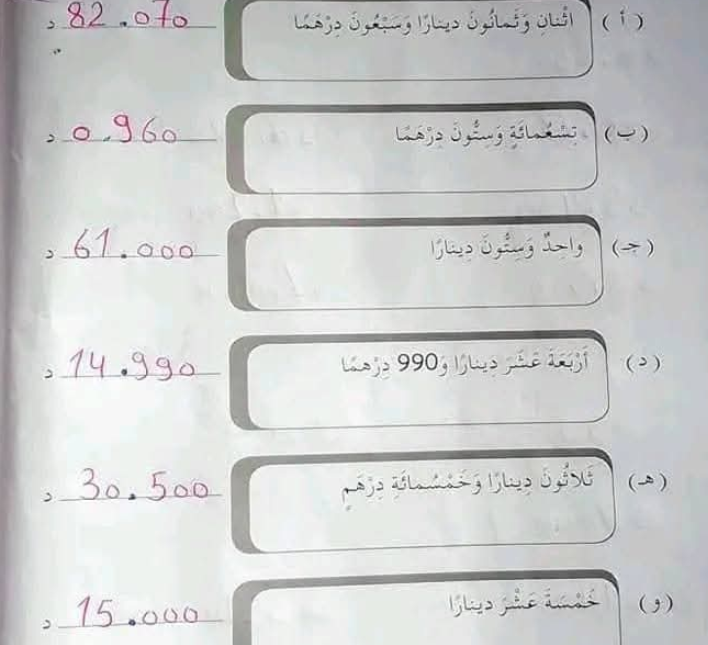 ( أ ) اثْنانِ وَثَمانُونَ دينارًا وَسَبْعُونَ دِرْهَمًا 82.070 د
( ب ) تِسْعُمائَةِ وَسِتُّونَ دِرْهَمًا 0.960 د
( جـ ) واحِدٌ وَسِتُّونَ دِينارًا 61.000 د
( د ) أَرْبَعَةَ عَشَرَ دِينارًا و990 دِرْهَمًا 14.990 د
( هـ ) ثَلاثُونَ دِينارًا وَخَمْسُمائَةِ دِرْهَمٍ 30.500 د
( و ) خَمْسَةَ عَشَرَ دِينارًا 15.000 د